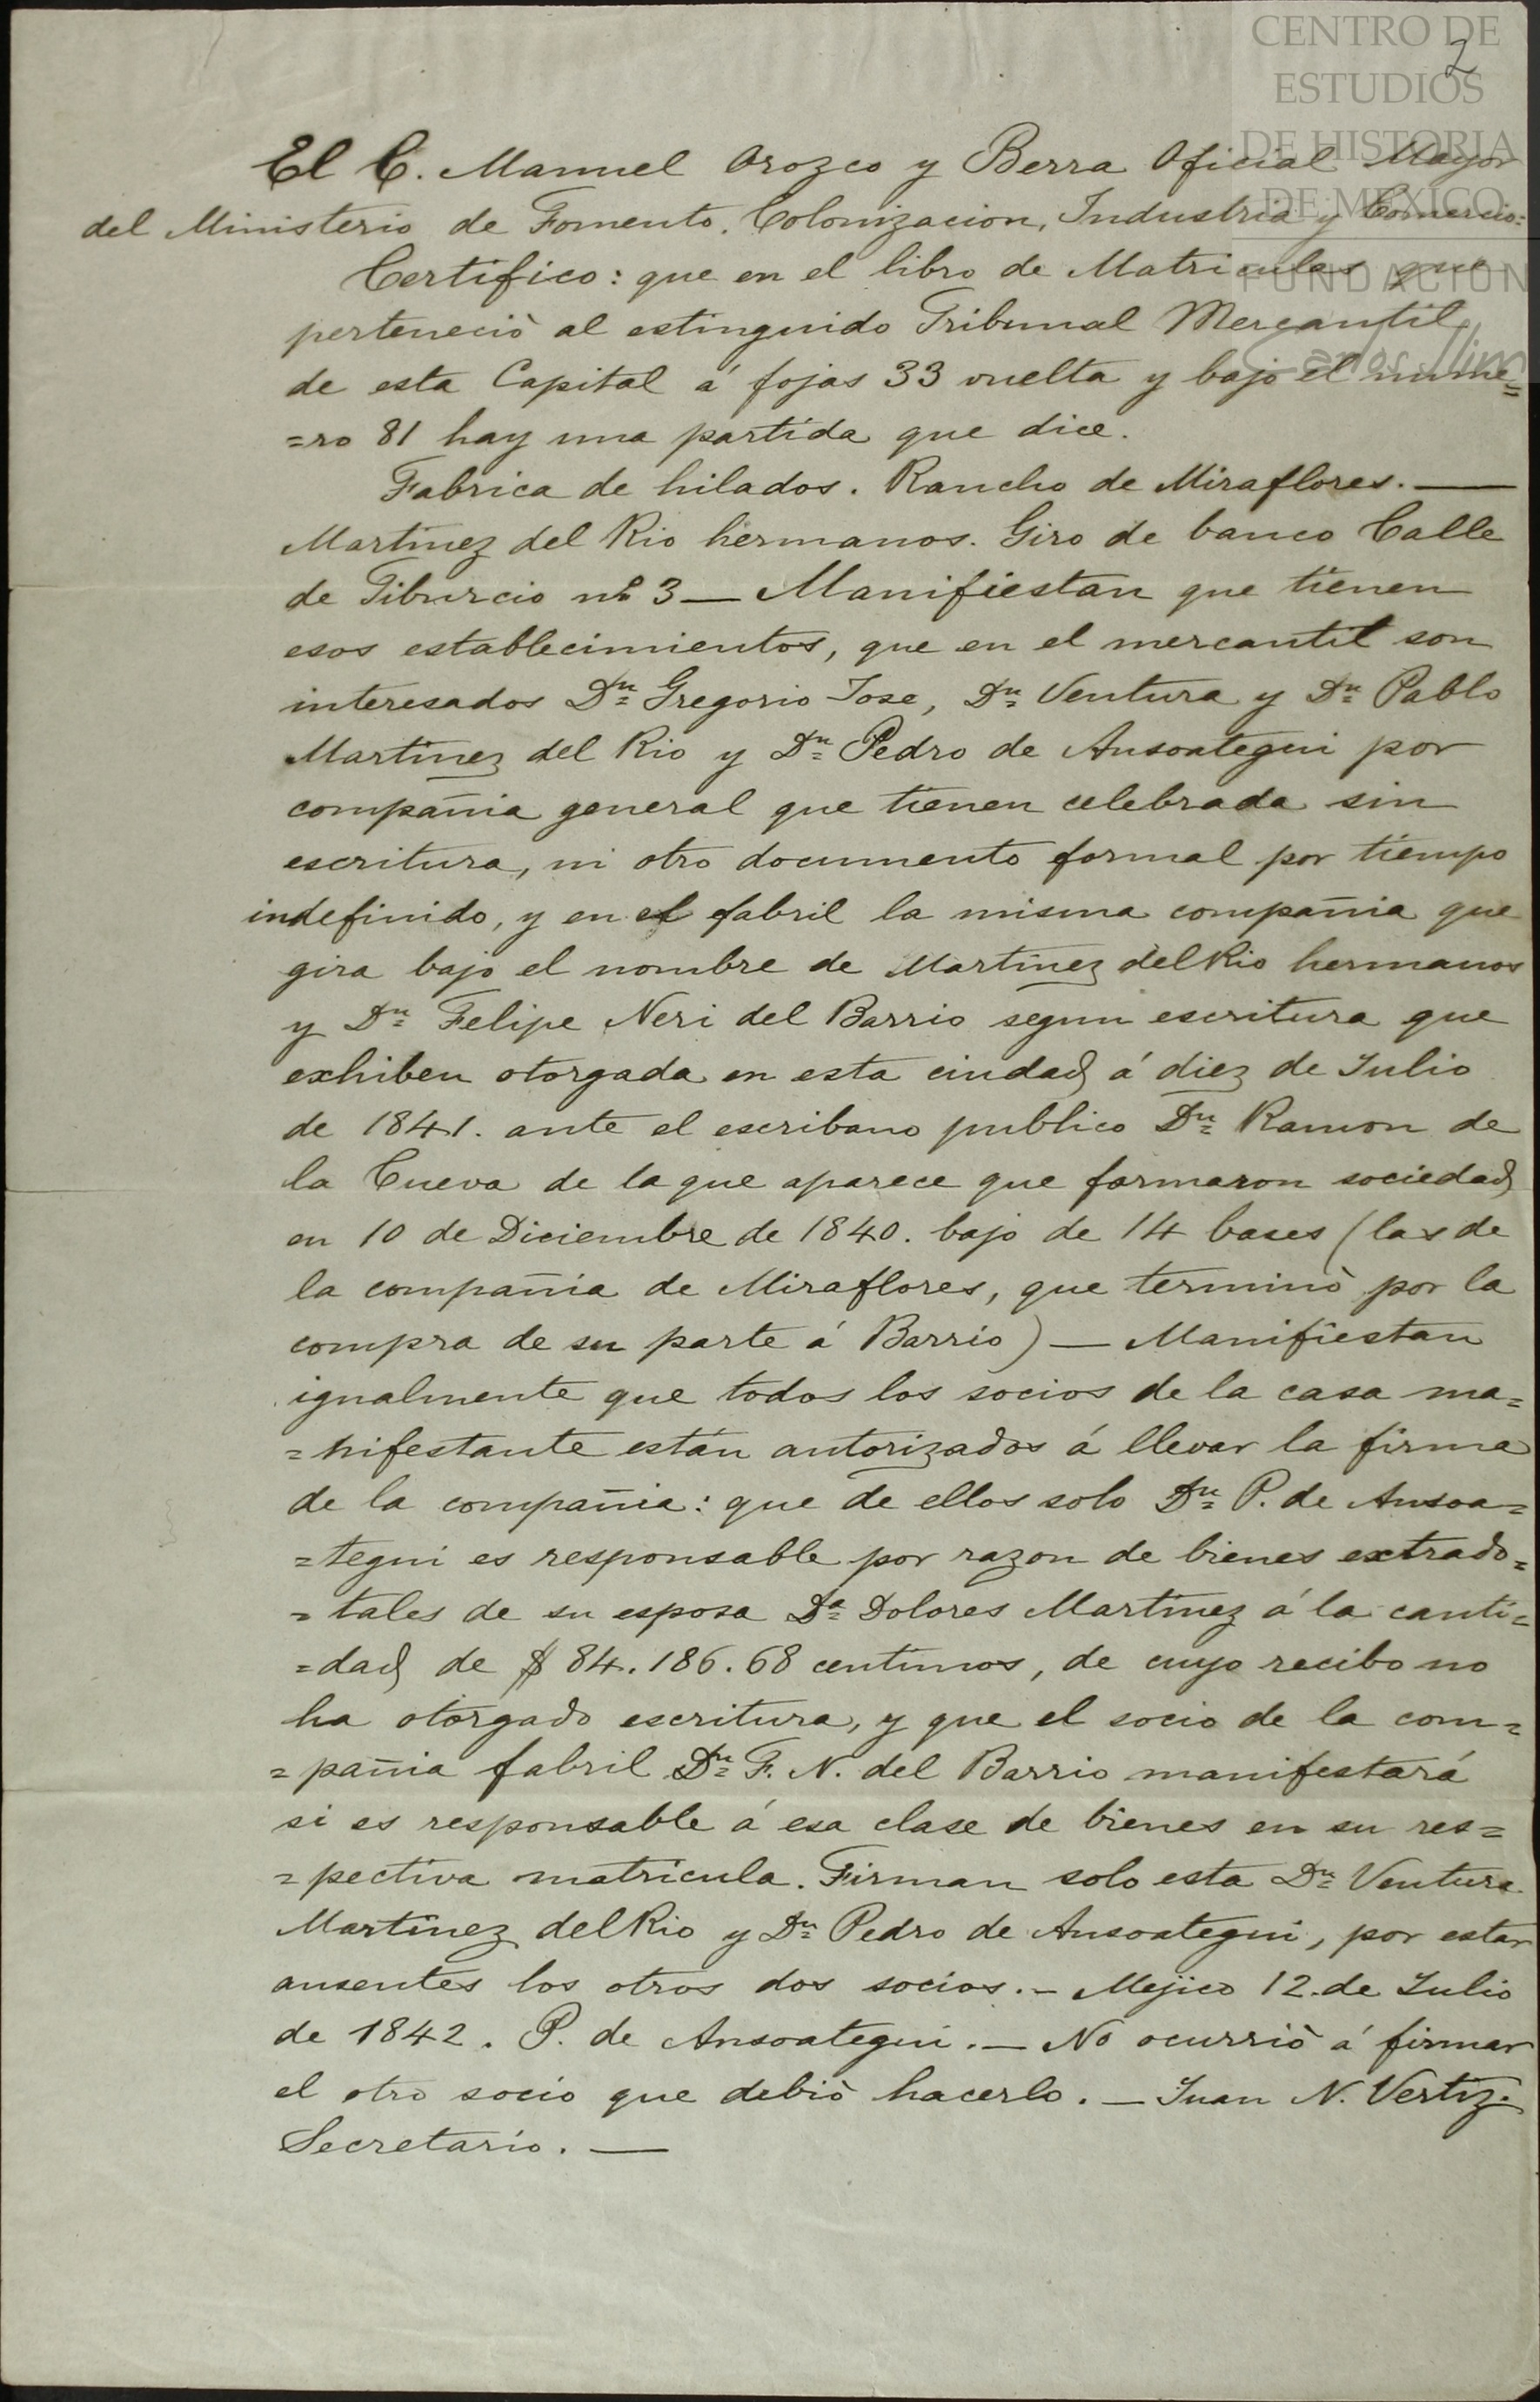 CENTRO DE
ESTUDIOS
DE HISTORIA
DE MÉXICO
FUNDACIÓN
Carlos Slim
2
El C. Manuel Orozco y Berra Oficial Mayor
del Ministerio de Fomento, Colonizacion, Industria y Comercio:
Certifico: que en el libro de Matriculas que
perteneciò al estinguido Tribunal Mercantil
de esta Capital á fojas 33 vuelta y bajo el nume=
=ro 81 hay una partida que dice.
Fabrica de hilados. Rancho de Miraflores. —
Martinez del Rio hermanos. Giro de banco Calle
de Tiburcio nº 3 — Manifiestan que tienen
esos establecimientos, que en el mercantil son
interesados Dn= Gregorio Jose, Dn= Ventura y Dn= Pablo
Martinez del Rio y Dn= Pedro de Ansoategui por
compañia general que tienen celebrada sin
escritura, ni otro documento formal por tiempo
indefinido, y en el fabril la misma compañia que
gira bajo el nombre de Martinez del Rio hermanos
y Dn= Felipe Neri del Barrio segun escritura que
exhiben otorgada en esta ciudad á diez de Julio
de 1841. ante el escribano publico Dn= Ramon de
la Cueva de la que aparece que formaron sociedad
en 10 de Diciembre de 1840. bajo de 14 bases (las de
la compañia de Miraflores, que terminò por la
compra de su parte á Barrio) — Manifiestan
igualmente que todos los socios de la casa ma=
=nifestante están autorizados á llevar la firma
de la compañia: que de ellos solo Dn= P. de Ansoa=
=tegui es responsable por razon de bienes extrado=
=tales de su esposa Da= Dolores Martinez á la canti=
=dad de $ 84.186.68 centimos, de cuyo recibo no
ha otorgado escritura, y que el socio de la com=
=pañia fabril Dn= F. N. del Barrio manifestará
si es responsable á esa clase de bienes en su res=
=pectiva matricula. Firman solo esta Dn= Ventura
Martinez del Rio y Dn= Pedro de Ansoategui, por estar
ausentes los otros dos socios. — Mejico 12. de Julio
de 1842. P. de Ansoategui. — No ocurriò á firmar
el otro socio que debiò hacerlo. — Juan N. Vertiz.
Secretario. —